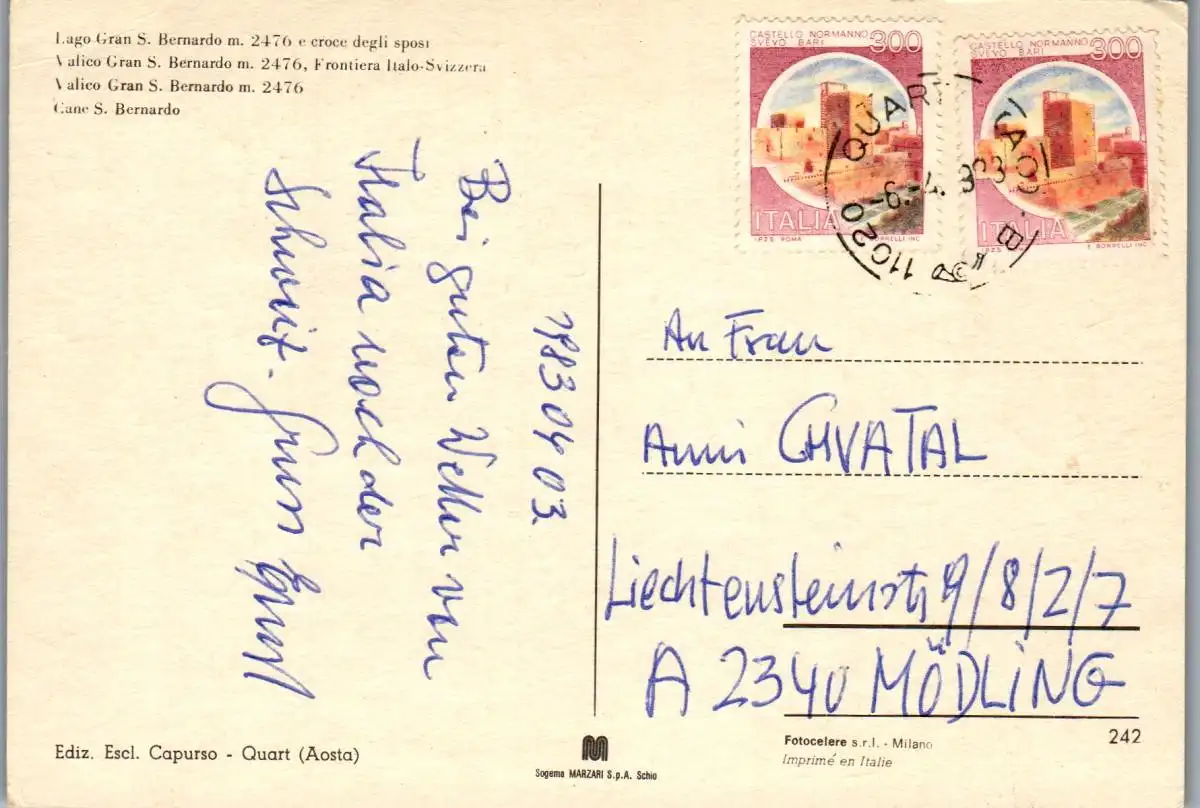 Lago Gran S. Bernardo m. 2476 e croce degli sposi
Valico Gran S. Bernardo m. 2476, Frontiera Italo-Svizzera
Valico Gran S. Bernardo m. 2476
Cane S. Bernardo
CASTELLO NORMANNO
SVEVO BARI
300
ITALIA
I.P.Z.S. ROMA E. BORRELLI INC.
CASTELLO NORMANNO
SVEVO BARI
300
ITALIA
I.P.Z.S. E. BORRELLI INC.
11020 QUART (AO)
-6.-4.
1983 04 03.
Bei guten Wetter von
Italia nach der
Schweiz.
An Frau
Anni CHVATAL
Liechtensteinstr 9/8/2/7
A 2340 MÖDLING
Ediz. Escl. Capurso - Quart (Aosta)
M
Sogema MARZARI S.p.A. Schio
Fotocelere s.r.l. - Milano
Imprimé en Italie
242